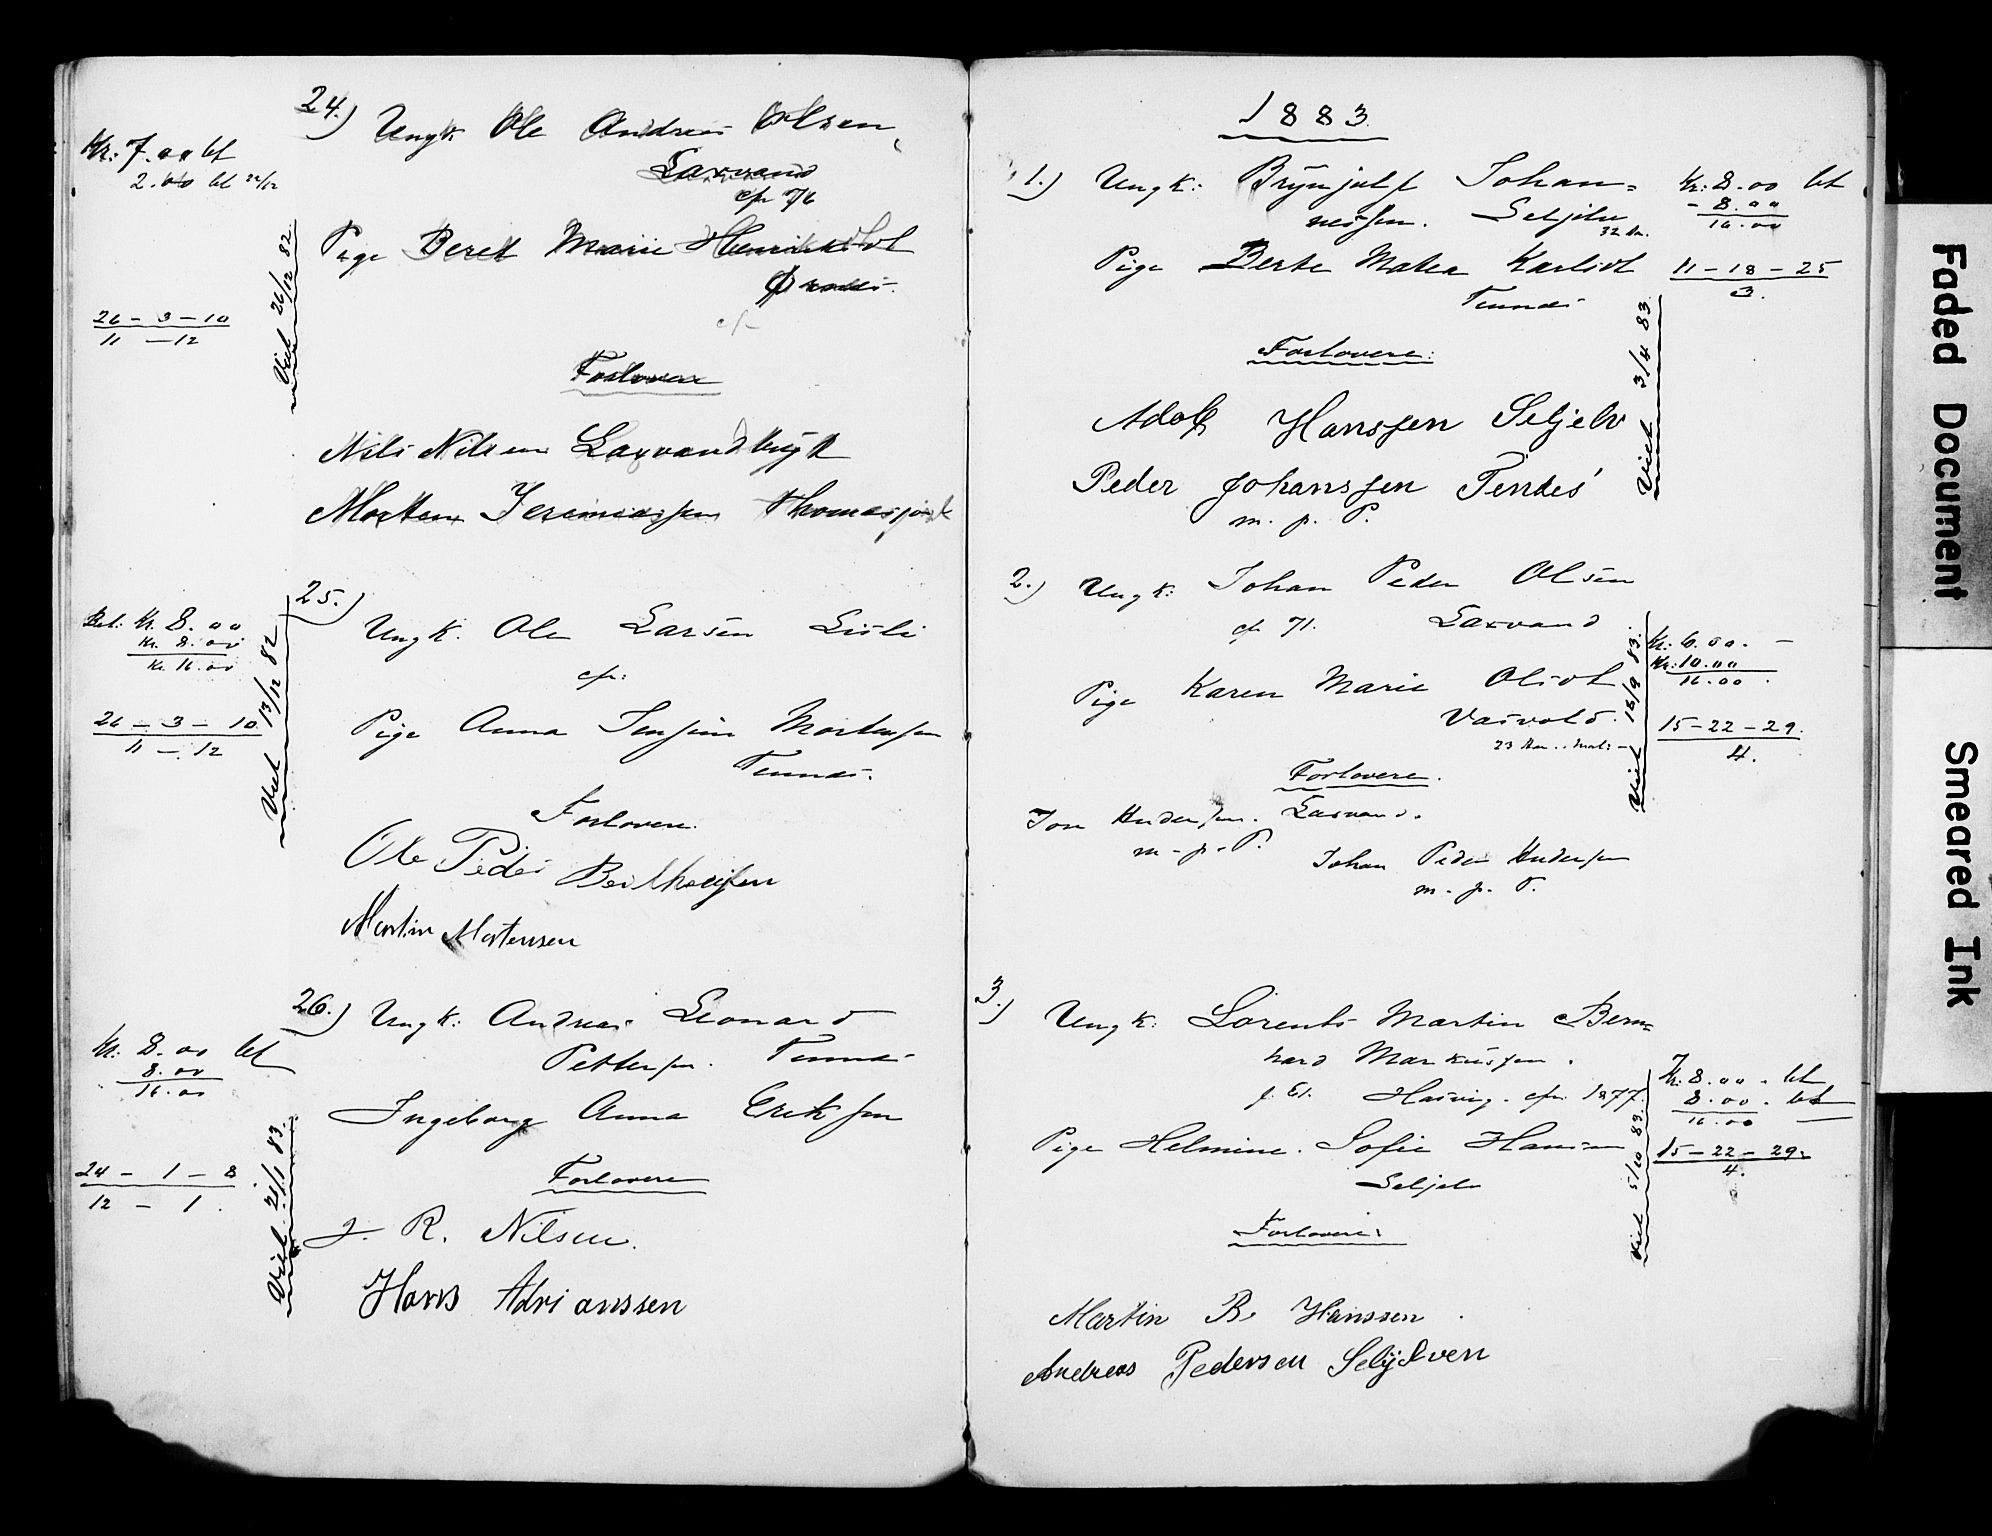 24.) Ungk. Ole Andreas Olsen,
Laxvand
cfr 76
Pige Beret Marie Henriksdt
Ørnnes.
cfr
Forlovere
Nils Nilsen Laxvandbugt
Morten Jeremiassen Thomasjord
Kr: 7.00 bet
2.00 bet 22/12
26 - 3 - 10
11 - 12
Viet 26/12 82.
25.)
Ungk. Ole Larsen Lisli
cfr:
Pige Anna Jensine Mortensen
Tennes.
Forlovere.
Ole Peder Bertheusen
Martin Mortensen
Bet: Kr. 8.00
Kr. 8.00
Kr. 16.00
26 - 3 - 10
11 - 12
Viet 13/12 82
26.) Ungk: Andreas Leonard
Pettersen. Tennes
Ingeborg Anna Eriksen
Forlovere
J. R. Nilsen.
Hans Adrianssen
Kr: 8.00 bet
8.00
16.00
24 - 1 - 8
12 - 1.
Viet 21/1 83.
1883.
1.) Ungk: Brynjulf Johan=
nessen. Seljelv
32 Aar.
Pige Berte Matea Karlsdt
Tennes
Forlovere:
Adolf Hanssen Seljelv
Peder Johanssen Tendes
m. p. P.
Kr: 8.00 bet
- 8.00
16.00
11 - 18 - 25
3.
Viet 3/4 83.
2.) Ungk: Johan Peder Olsen
cfr 71. Laxvand
Pige Karen Marie Olsdt
23 Aar
Forlovere.
Jon Andersen. Laxvand.
m. p. P.
Johan Peder Andersen
m. p. P.
Kr: 6.00. -
Kr: 10.00
16.00.
15 - 22 - 29.
4.
Viet 16/9 83.
3.) Ungk: Lorents Martin Bern=
hard Markussen.
f. 61. cfr. 1877.
Pige Helmine Sofie Hansen
Seljelv
Forlovere:
Martin B. Hanssen.
Andreas Pedersen Selijelven
Kr. 8.00. bet
8.00. bet
16.00
15 - 22 - 29.
4.
Viet 5/10 83.
Faded Document
Smeared Ink